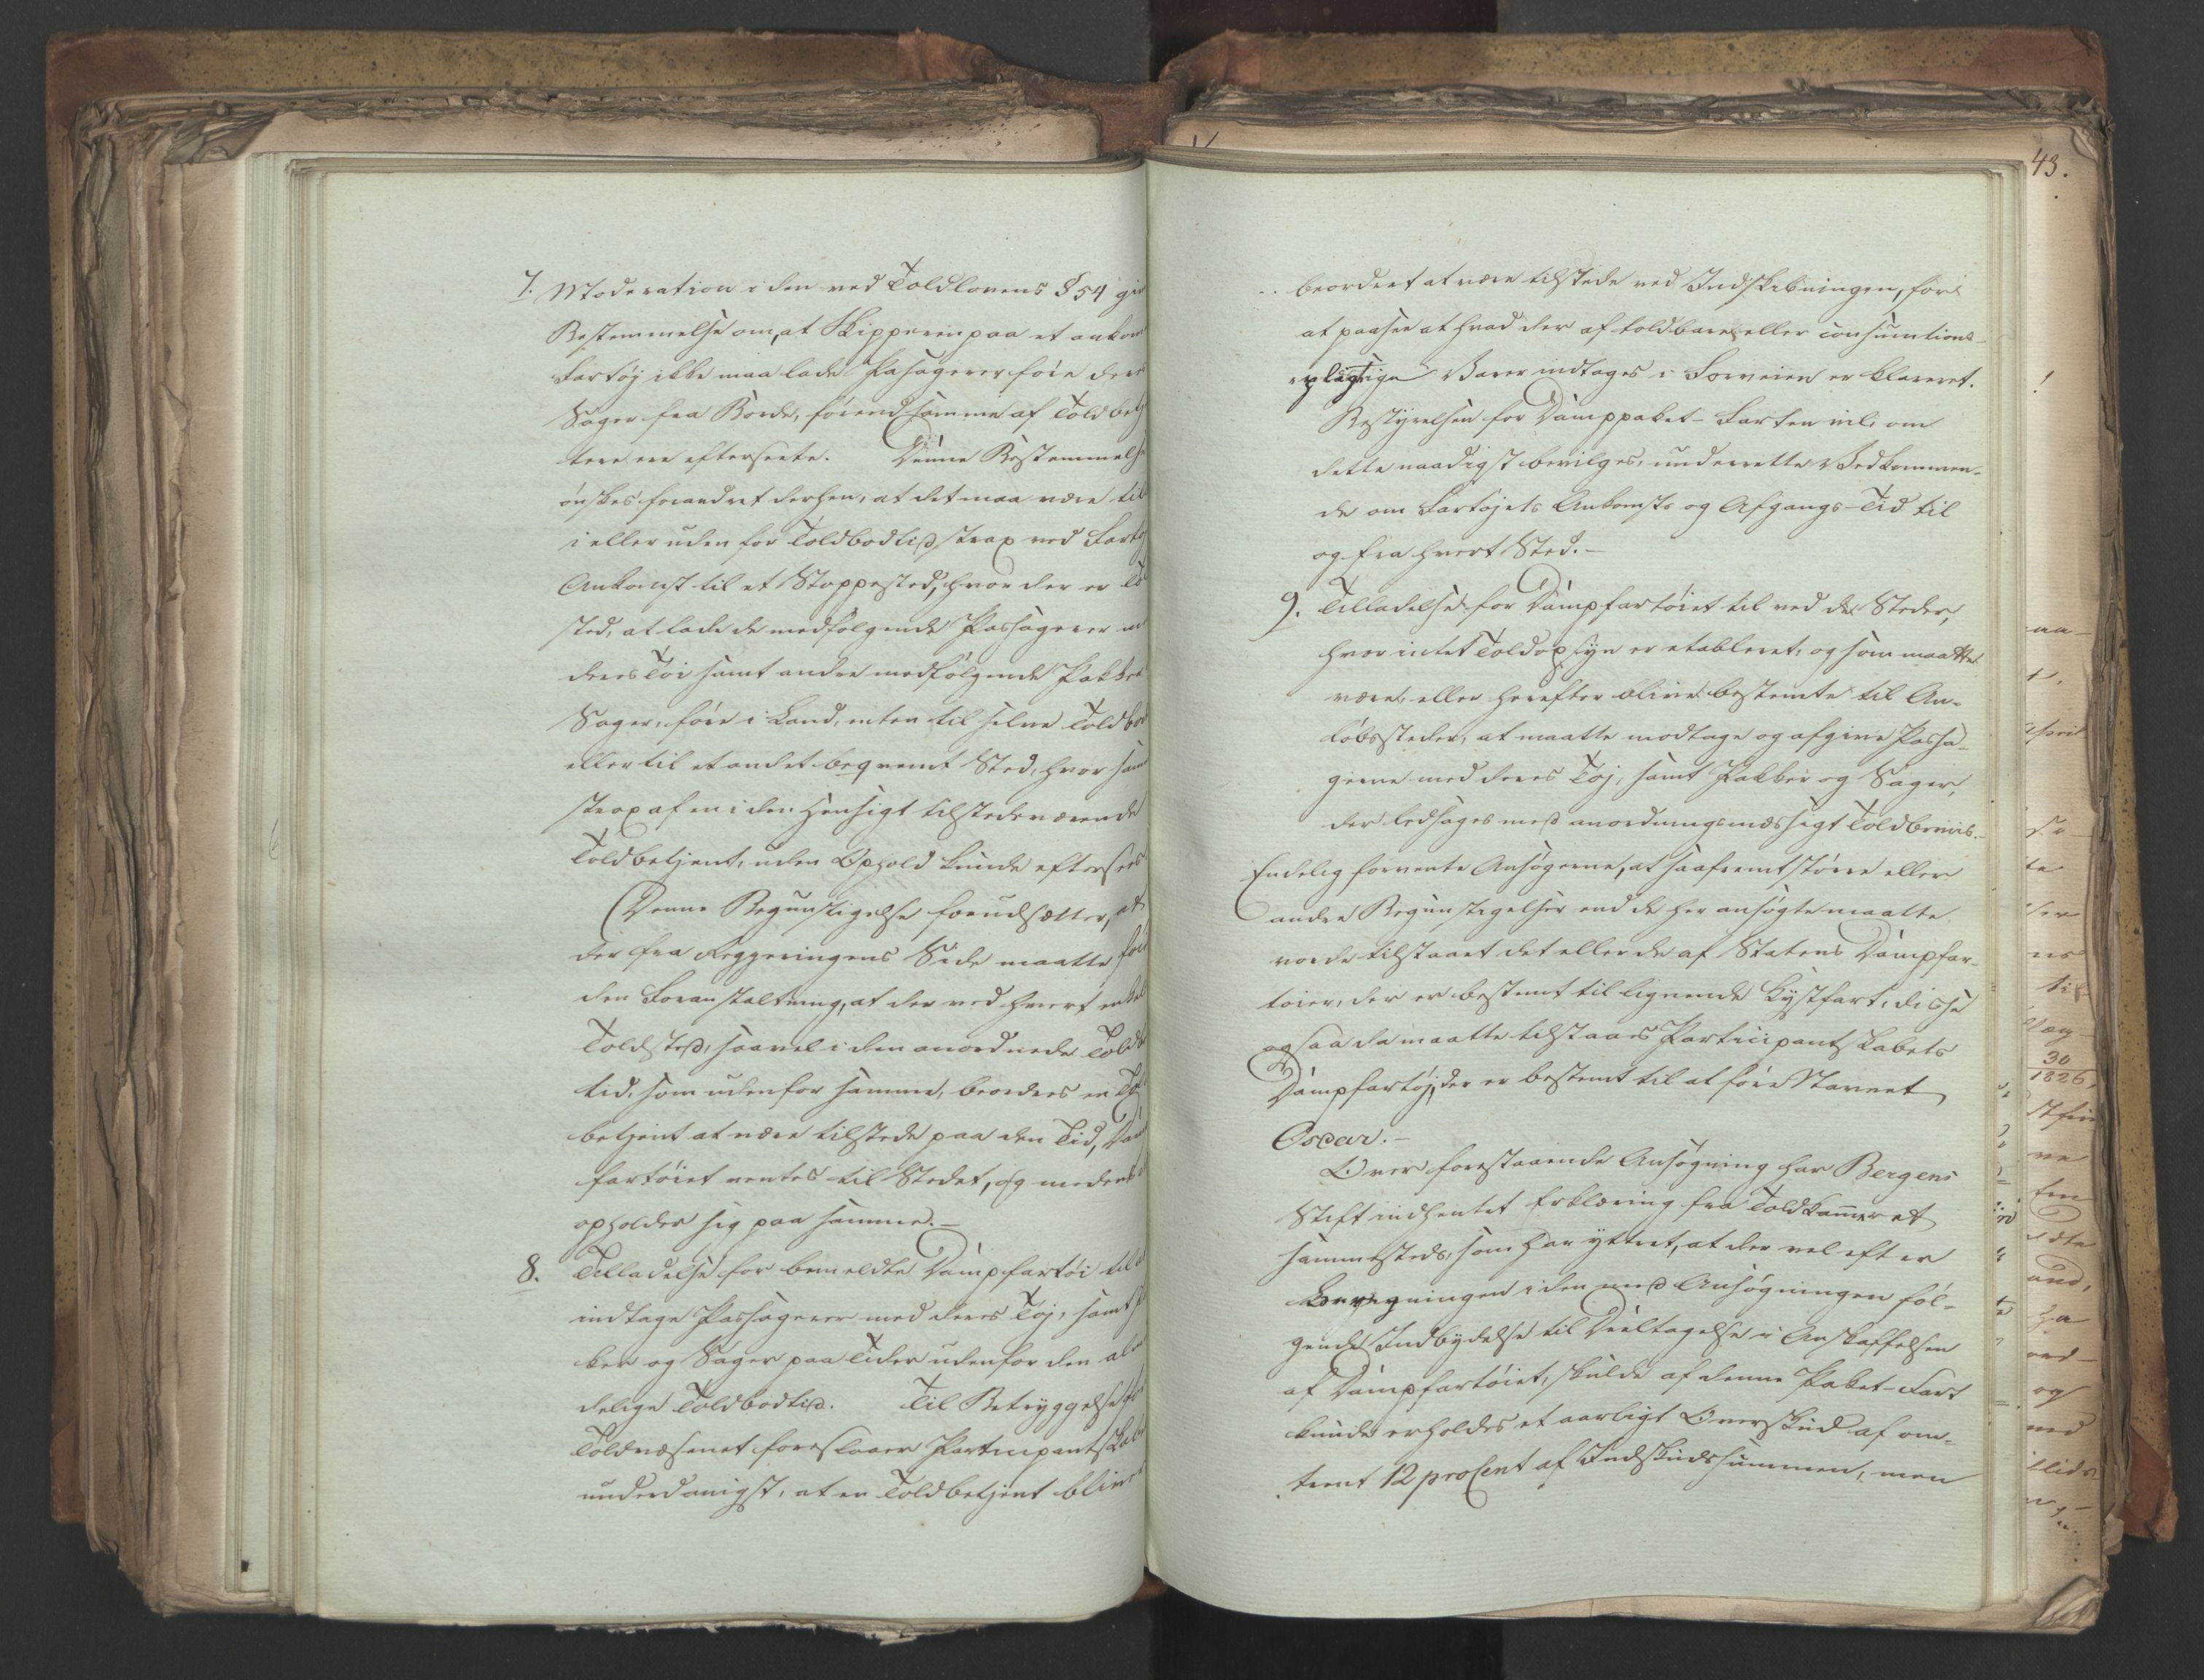 7. Moderation i den ved Toldlovens § 54 giv
Bestemmelse om, at Skipperen paa et ankom
Fartøj ikke maa lade Passagerer føre deres
Sager fra Borde, førend samme af Toldbetj
tere ere efterseete. Denne Bestemmelse
ønskes forandret derhen, at det maa være til
i eller uden for Toldbodtid, strax ved Fartø
Ankomst til et Stoppested, hvor der er To
sted, at lade de medfølgende Passagerer
deres Tøi samt andre medfølgende Pakker
Sager, føre i Land, enten til selve Toldbod
eller til et andet beqvemt Sted, hvor sam
strax af en i den Hensigt tilstedeværende
Toldbetjent, uden Ophold kunde efterseees
Denne Begunstigelse forudsætter, at
der fra Reggeringens Side maatte føie
den Foranstaltning, at der ved hvert enkel
Toldsted, saavel i den anordnede Toldb
tid, som udenfor samme, beordres en Told
betjent at være tilstede paa den Tid, Dam
fartøiet ventes til Stedet, og medens
opholder sig paa samme.—
8. Tilladelse for bemeldte Dampfartøi til a
indtage Passagerer med deres Tøj, samt P
ker og Sager paa Tider udenfor den alm
delige Toldbodtid. Til Betryggelse for
Toldvæsenet foreslaaer Participantskabe
underdanigst, at en Toldbetjent blive
43.
beordret at være tilstede ved Indskibningen, for
at paasee at hvad der af toldbare eller consumtions-
pligtige Varer indtages i Forveien er klareret.
Bestyrelsen for Damppaket-Farten vil, om
dette naadigst bevilges, underrette Vedkommen-
de om Fartøjets Ankomsts og Afgangs-Tid til
og fra hvert Sted.—
9. Tilladelse for Dampfartøiet til ved de Steder,
hvor intet Toldopsyn er etableret, og som maatte
være, eller herefter blive bestemte til An-
løbssteder, at maatte modtage og afgive Passa-
gerer med deres Tøj, samt Pakker og Sager,
der ledsages med anordningsmæssigt Toldbeviis.—
Endelig forvente Ansøgerne, at saafremt større eller
andre Begunstigelser end de her ansøgte maatte
vorde tilstaaet det eller de af Statens Dampfar-
tøier, der er bestemt til lignende Kystfart, disse
ogsaa da maatte tilstaaes Participantskabets
Dampfartøj, der er bestemt til at føre Navnet
Oscar.—
Over forestaaende Ansøgning har Bergens
Stift indhentet Erklæring fra Toldkammeret
sammesteds, som har yttret, at der vel efter
Beregningen i den med Ansøgningen føl-
gende Indbydelse til Deeltagelse i Anskaffelsen
af Dampfartøiet, skulde af denne Paket-Fart
kunde erholdes et aarligt Overskud af om-
trent 12 procent af Indskudssummen, men